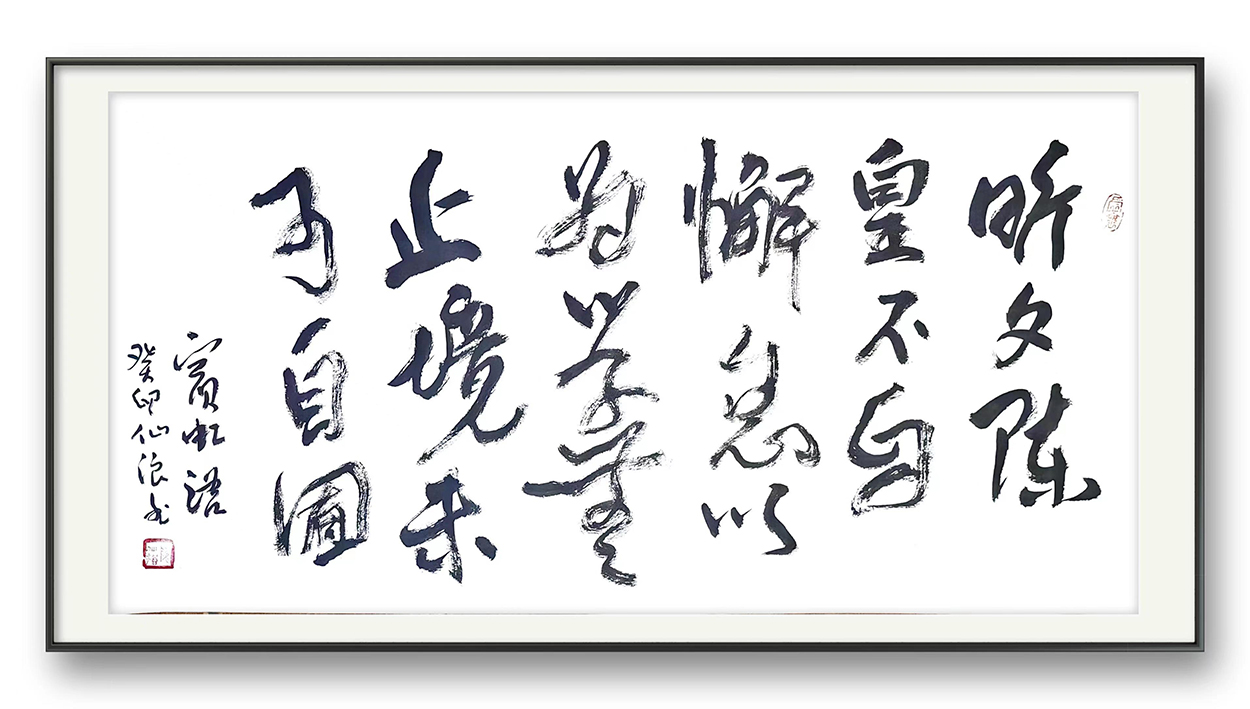 昕夕陈
皇不自
懈怠以
为学无
止境未
可自囿
賓虹语
癸卯仙浪书